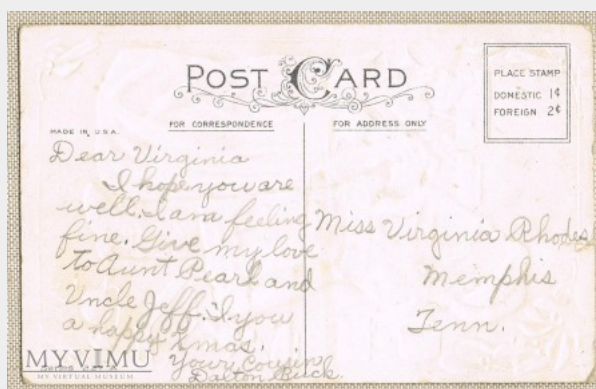 POST CARD
PLACE STAMP
DOMESTIC 1¢
FOREIGN 2¢
MADE IN U.S.A.
FOR CORRESPONDENCE
FOR ADDRESS ONLY
Dear Virginia
I hope you are
well. I am feeling
fine. Give my love
to Aunt Pearl and
Uncle Jeff. I you
a happy Xmas.
Your Cousin,
Dalton Buck.
Miss Virginia Rhodes
Memphis
Tenn.
MYVIMU
MY VIRTUAL MUSEUM